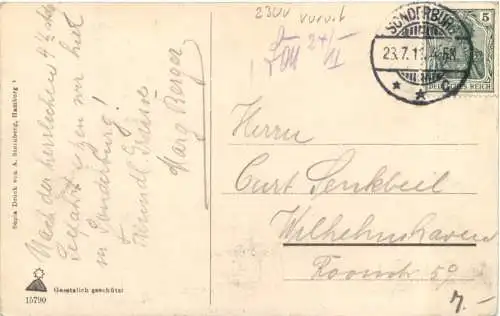 2300 vorort
24/-
SONDERBURG
23.7.11
* * C
5
DEUTSCHES REICH
Nach der herrlichen 4½
Seefahrt sitzen wir hier
in Sonderburg!
Freundl. Grüsse
Marg Berger
Herrn
Curt Senkbeil
Wilhelmshaven
Roonstr 59
7.-
Sepia Druck von A. Sternberg, Hamburg 1
Gesetzlich geschützt
15790